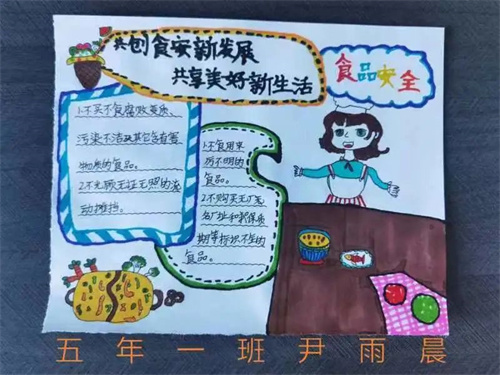 共创食安新发展
共享美好新生活
食品安全
1.不买不食腐败变质、
污染不洁及其它含有害
物质的食品。
2.不光顾无证无照的流
动摊档。
1.不食用来
历不明的
食品。
2.不购买无厂名
名厂址和
期等标识不全的
食品。
五年一班尹雨晨